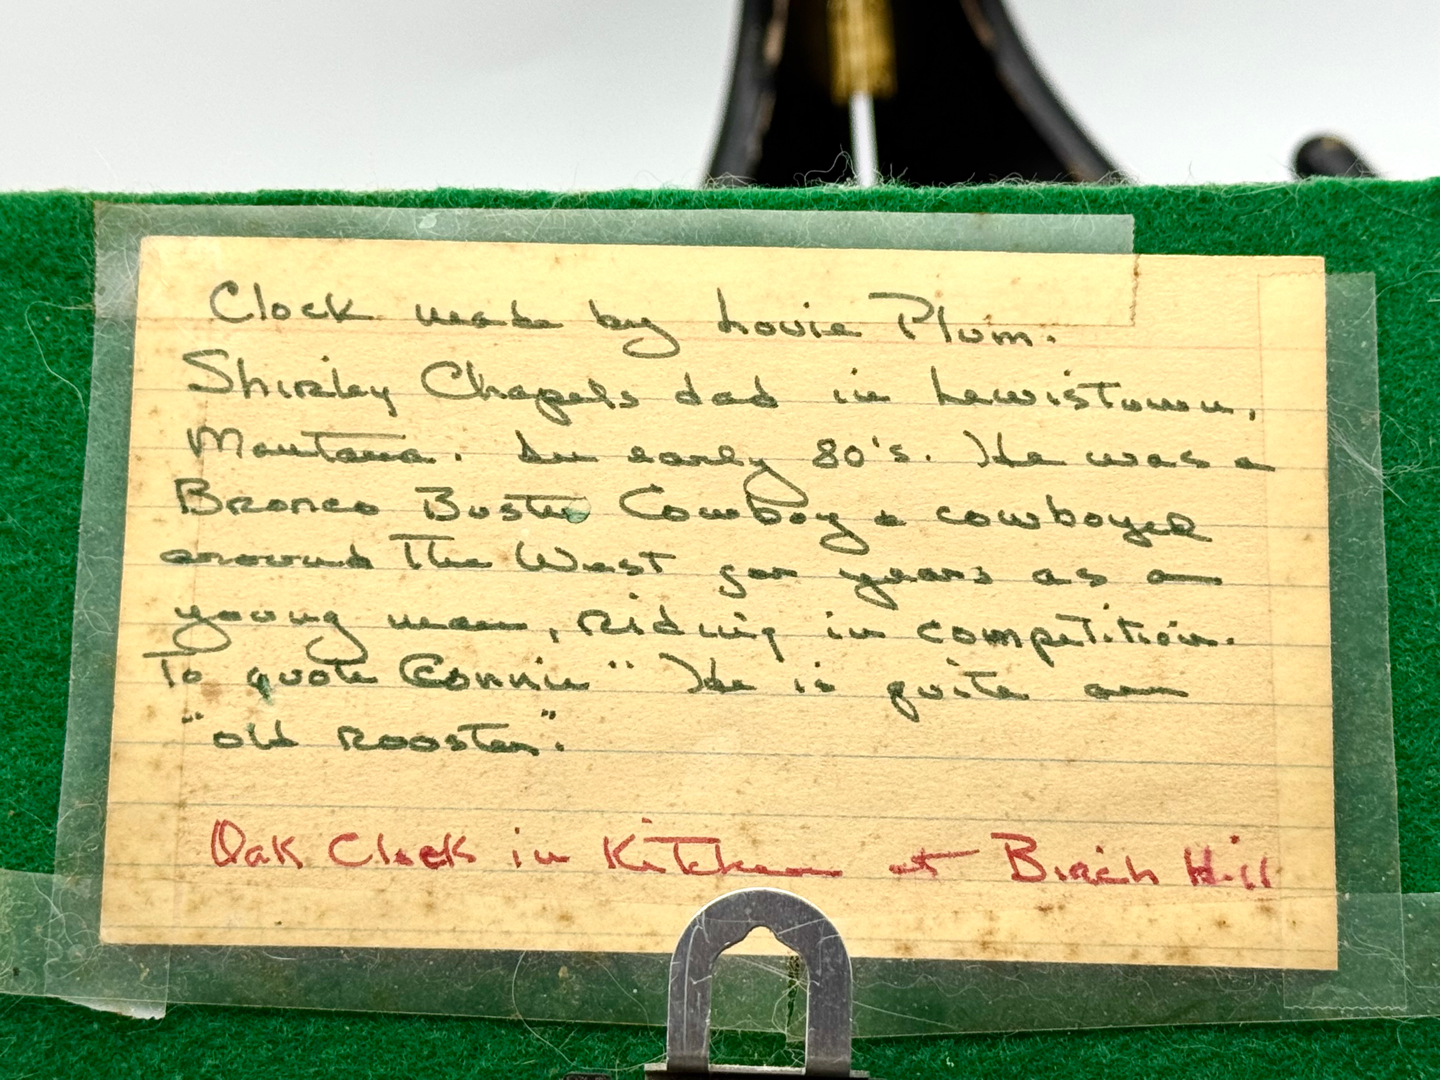 Clock made by Louie Plum.
Shirley Chapels dad in Lewistown,
Montana. In early 80's. He was a
Bronco Buster Cowboy & cowboyed
around The West for years as a
young man, Riding in competition.
To quote Connie " He is quite an
"old rooster".
Oak Clock in Kitchen at Birch Hill